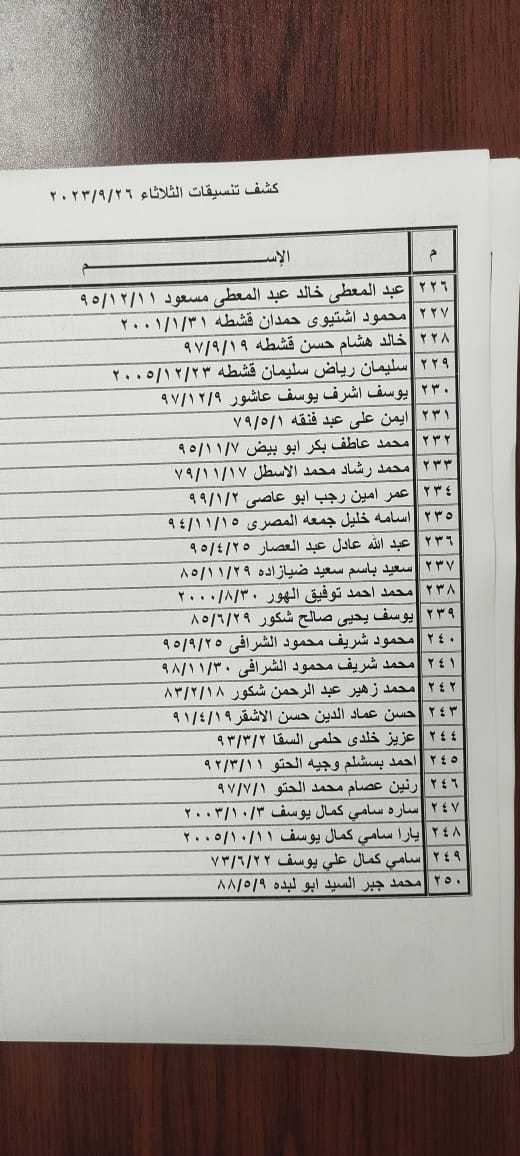 كشف تنسيقات الثلاثاء ٢٠٢٣/٩/٢٦
م الإســـــــــم
٢٢٦ عبد المعطى خالد عبد المعطى مسعود ٩٥/١٢/١١
٢٢٧ محمود اشتيوى حمدان قشطه ٢٠٠١/١/٣١
٢٢٨ خالد هشام حسن قشطه ٩٧/٩/١٩
٢٢٩ سليمان رياض سليمان قشطه ٢٠٠٥/١٢/٢٣
٢٣٠ يوسف اشرف يوسف عاشور ٩٧/١٢/٩
٢٣١ ايمن على عبد فنقه ٧٩/٥/١
٢٣٢ محمد عاطف بكر ابو بيض ٩٥/١١/٧
٢٣٣ محمد رشاد محمد الاسطل ٧٩/١١/١٧
٢٣٤ عمر امين رجب ابو عاصى ٩٩/١/٢
٢٣٥ اسامه خليل جمعه المصرى ٩٤/١١/١٥
٢٣٦ عبد الله عادل عبد العصار ٩٥/٤/٢٥
٢٣٧ سعيد باسم سعيد ضيازاده ٨٥/١١/٢٩
٢٣٨ محمد احمد توفيق الهور ٢٠٠٠/٨/٣٠
٢٣٩ يوسف يحيى صالح شكور ٨٥/٦/٢٩
٢٤٠ محمود شريف محمود الشرافى ٩٥/٩/٢٥
٢٤١ محمد شريف محمود الشرافى ٩٨/١١/٣٠
٢٤٢ محمد زهير عبد الرحمن شكور ٨٣/٢/١٨
٢٤٣ حسن عماد الدين حسن الاشقر ٩١/٤/١٩
٢٤٤ عزيز خلدى حلمى السقا ٩٣/٣/٢
٢٤٥ احمد بسشلم وجيه الحتو ٩٢/٣/١١
٢٤٦ رنين عصام محمد الحتو ٩٧/٧/١
٢٤٧ ساره سامي كمال يوسف ٢٠٠٣/١٠/٣
٢٤٨ يارا سامي كمال يوسف ٢٠٠٥/١٠/١١
٢٤٩ سامي كمال علي يوسف ٧٣/٦/٢٢
٢٥٠ محمد جبر السيد ابو لبده ٨٨/٥/٩